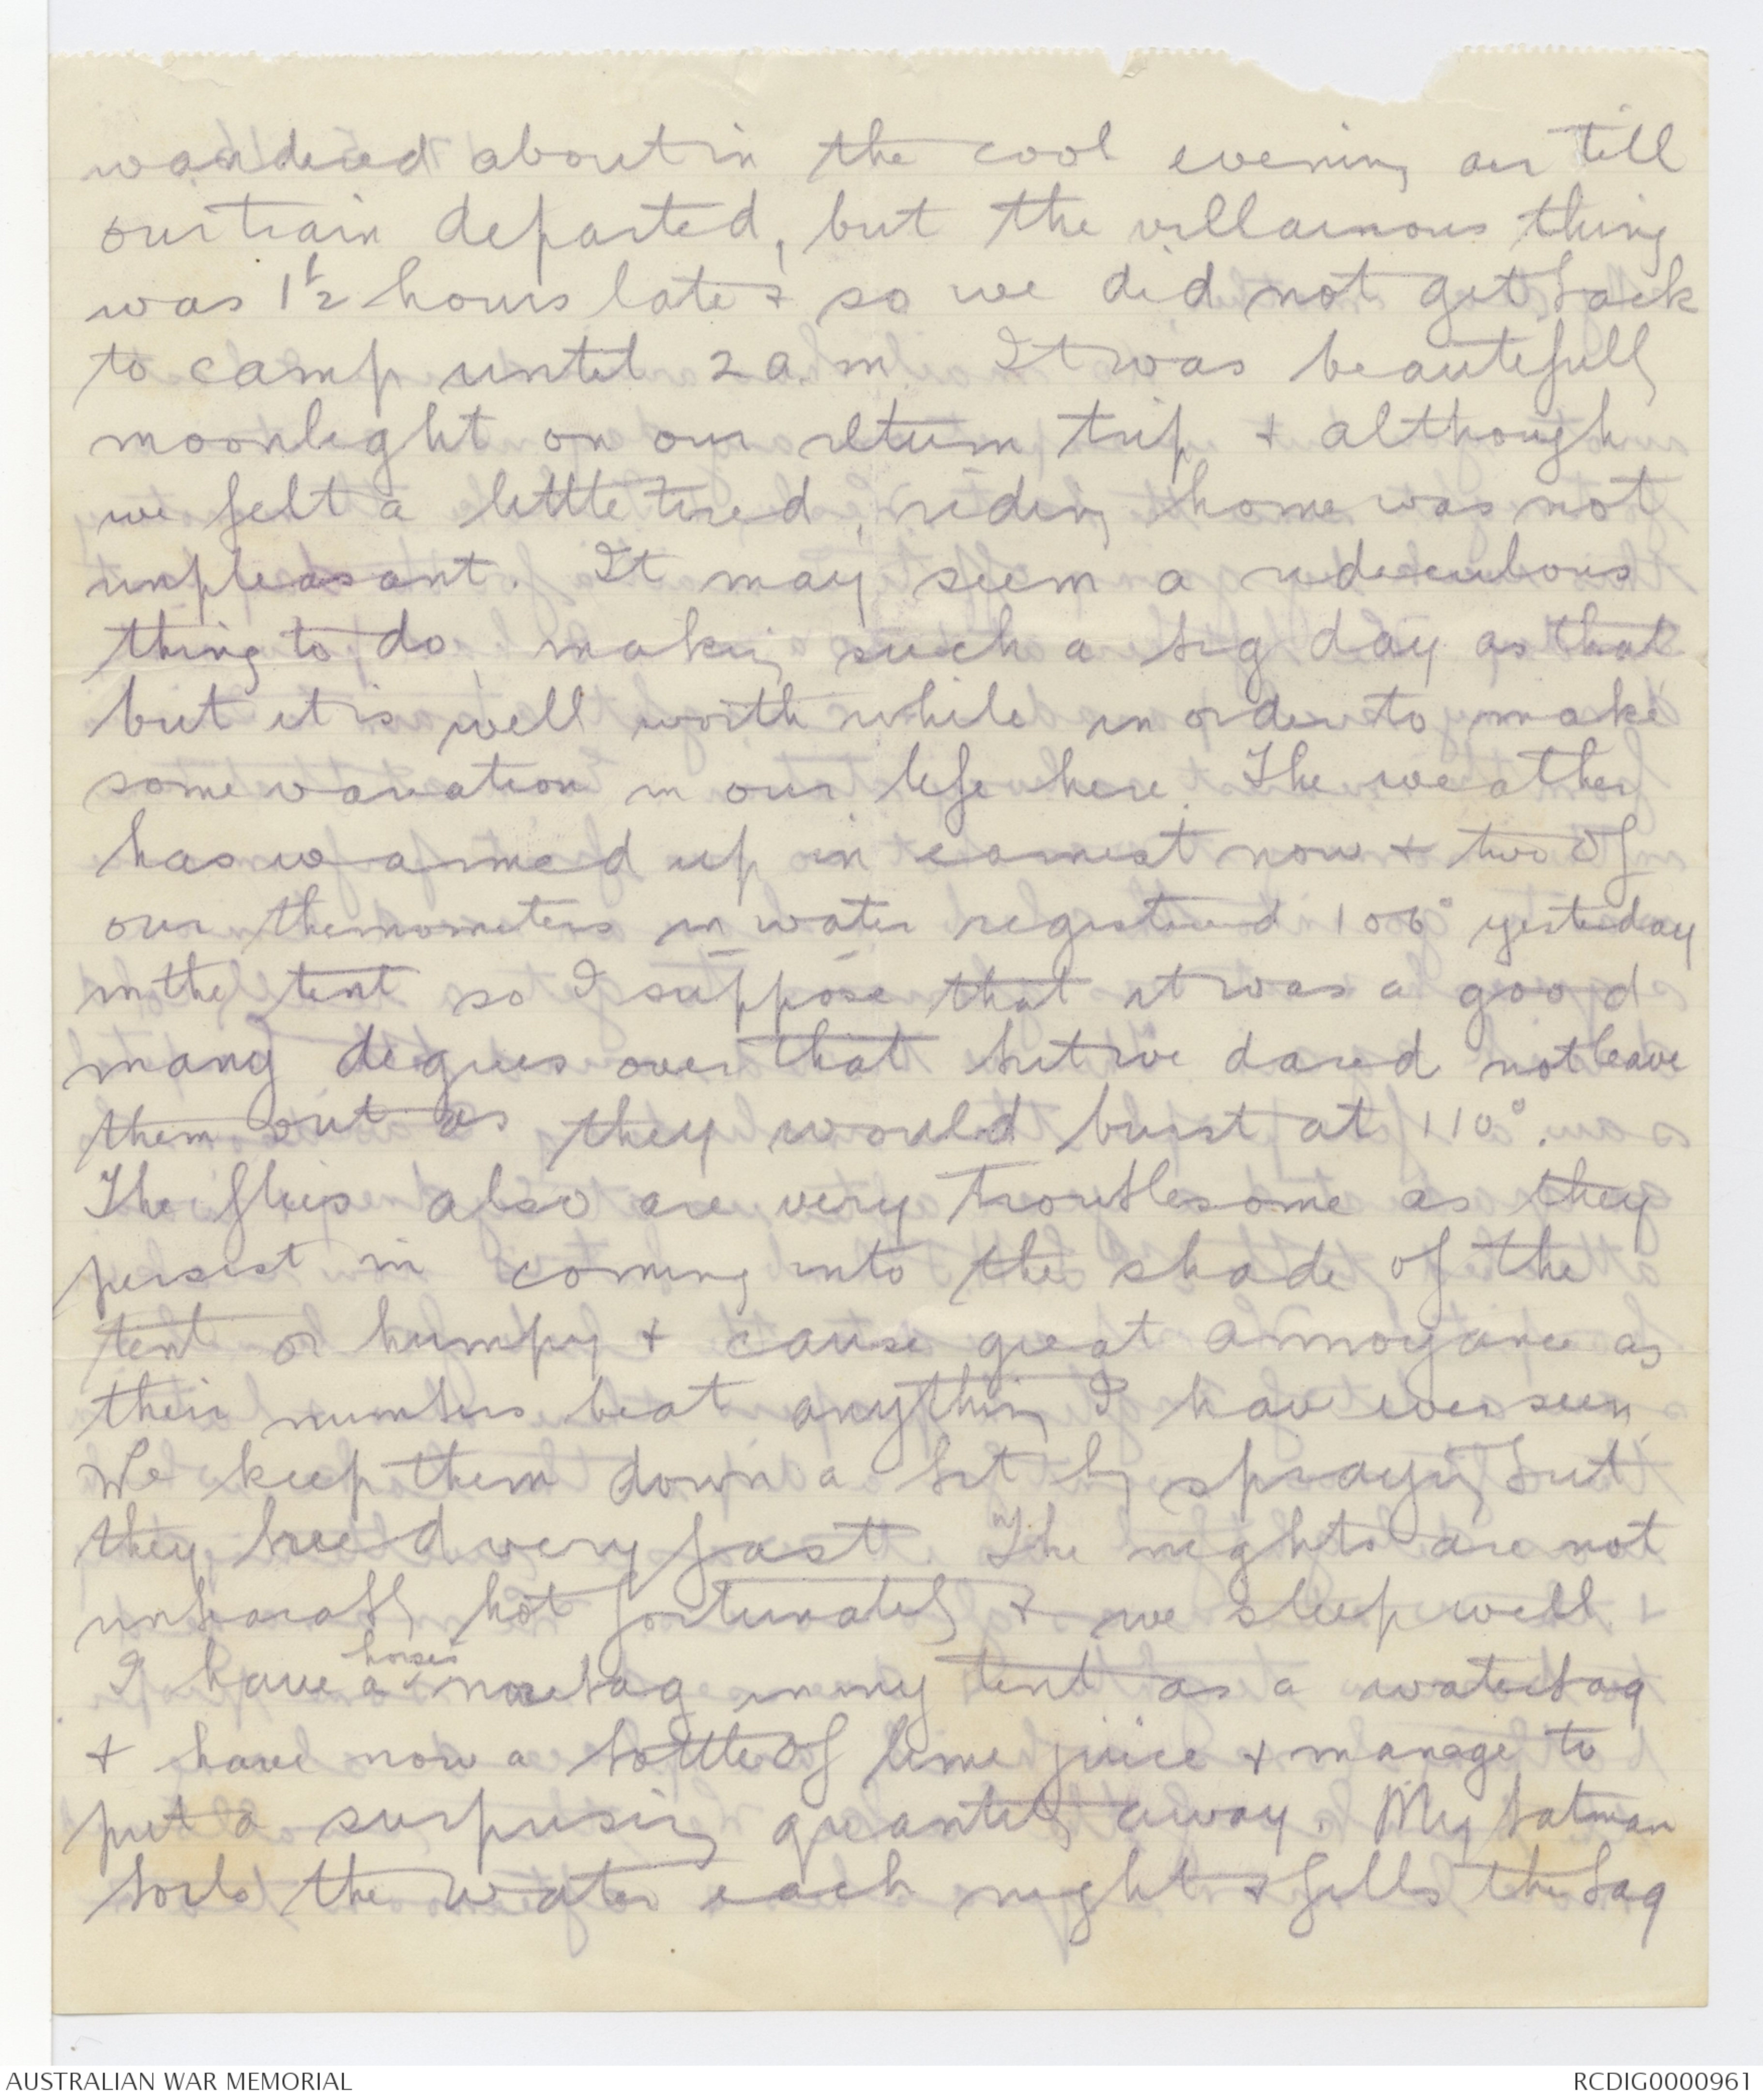 wandered about in the cool evening air till
our train departed, but the villainous thing
was 1 1/2 hours late & so we did not get back
to camp until 2 a.m. It was beautifully
moonlight on our return trip & although
we felt a little tired, riding home was not
unpleasant. It may seem a ridiculous
thing to do, making such a big day as that
but it is well worth while in order to make
some variation in our life here. The weather
has warmed up in earnest now & two of
our thermometers in water registered 106° yesterday
in the tent so I suppose that it was a good
many degrees over that but we dared not leave
them out as they would burst at 110°.
The flies also are very troublesome as they
persist in coming into the shade of the
tent or humpy & cause great annoyance as
their numbers beat anything I have ever seen.
We keep them down a bit by spraying but
they breed very fast. The nights are not
unbearably hot fortunately & we sleep well.
I have a horses nosebag in my tent as a waterbag
& have now a bottle of lime juice & manage to
put a surprising quantity away. My batman
boils the water each night & fills the bag
AUSTRALIAN WAR MEMORIAL
RCDIG0000961